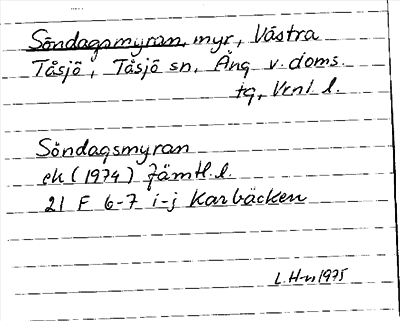 Söndagsmyran, myr, Västra
Tåsjö, Tåsjö sn, Ång v. doms.
tg, Vtnl l.
Söndagsmyran
ek (1974) Jämtl. l.
21 F 6-7 i-j Karbäcken
L. H-n 1975